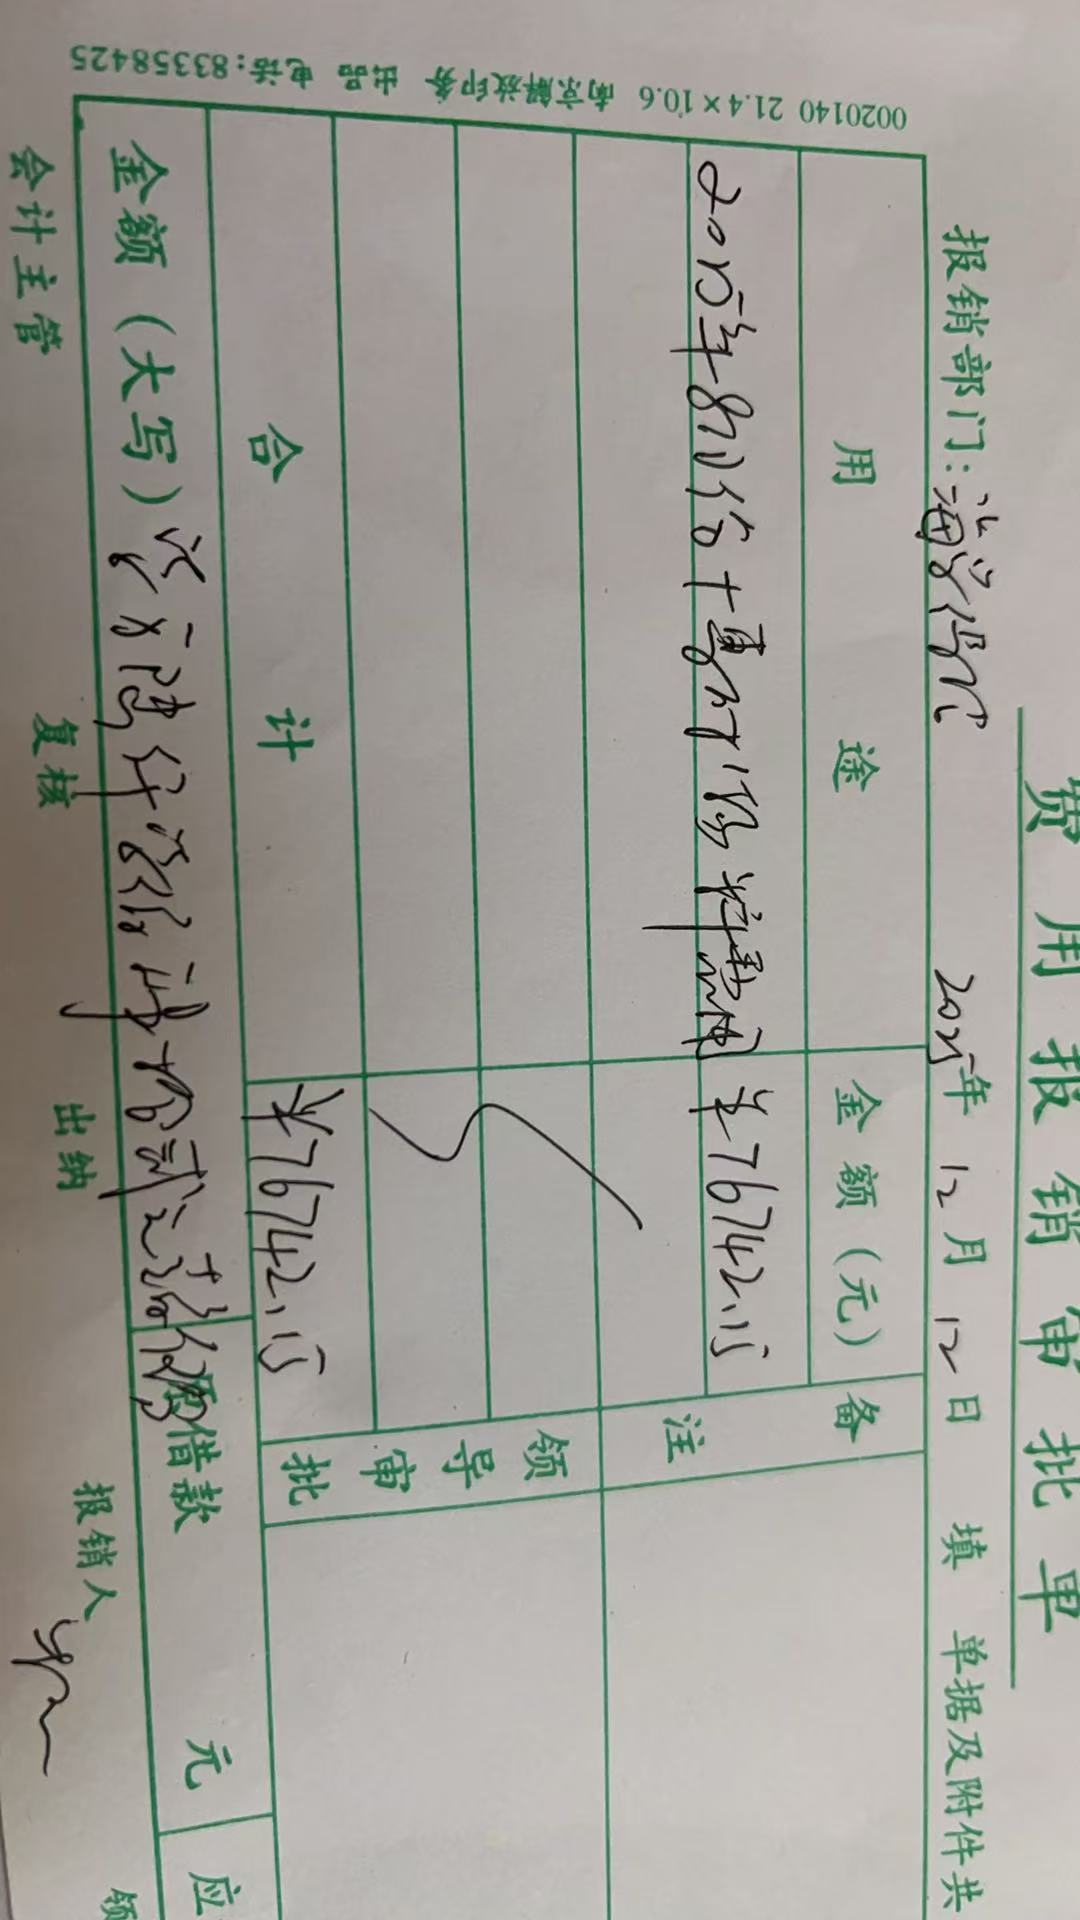 费用报销审批单
报销部门: 2025年12月12日 填 单据及附件共
用途 金额(元) 备
2025年8月份 ¥76742.15 注
领导审批
合计 ¥76742.15
金额(大写) 柒万陆仟柒佰肆拾贰元壹角伍分 原借款 元 应
会计主管 复核 出纳 报销人 领
0020140 21.4×10.6 南京解放印务 出品 电话:83358425